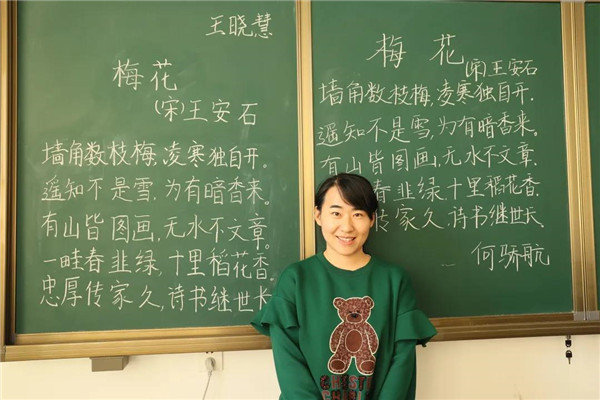 王晓慧
梅花
(宋)王安石
墙角数枝梅,凌寒独自开.
遥知不是雪,为有暗香来。
有山皆图画,无水不文章。
一畦春韭绿,十里稻花香
忠厚传家久,诗书继世长
梅 花
(宋)王安石
墙角数枝梅,凌寒独自开.
遥知不是雪,为有暗香来。
有山皆图画,无水不文章.
春韭绿,十里稻花香.
传家久,诗书继世长.
何骄航